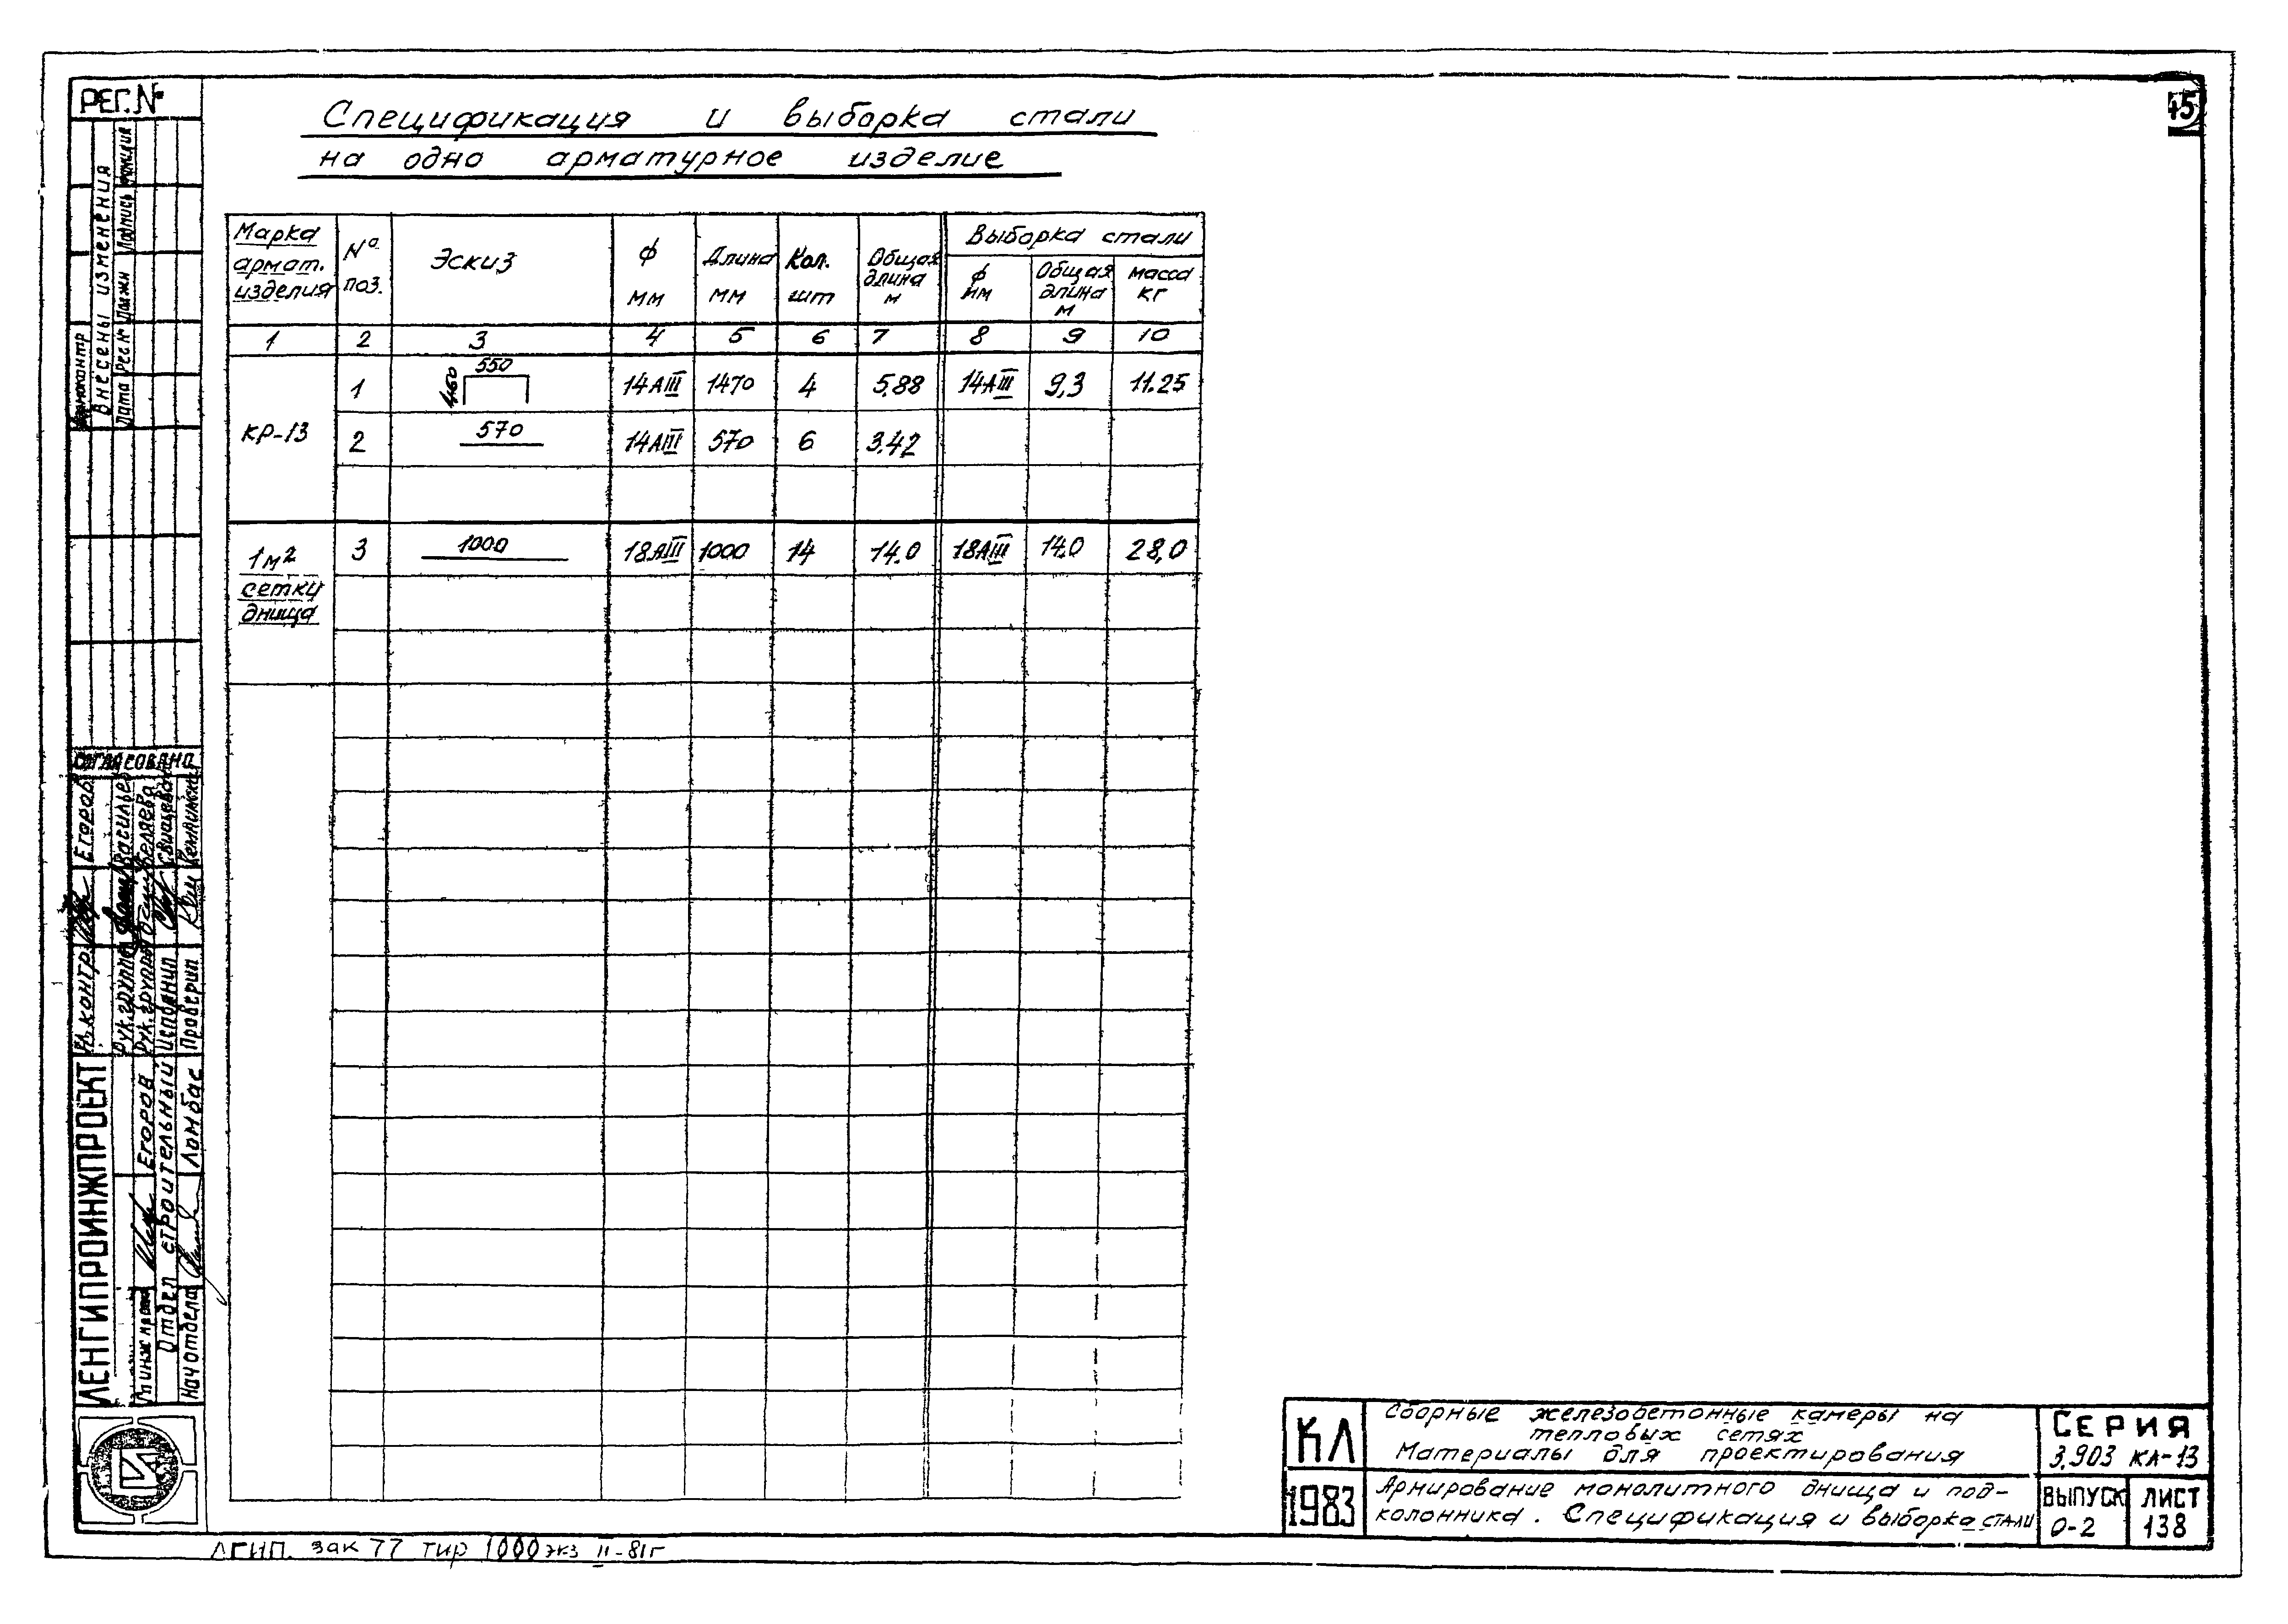 РЕГ. №
45
Спецификация и выборка стали
на одно арматурное изделие
Марка армат. изделия | № поз. | Эскиз | ф мм | Длина мм | Кол. шт | Общая длина м | Выборка стали
ф мм | Общая длина м | масса кг
1 | 2 | 3 | 4 | 5 | 6 | 7 | 8 | 9 | 10
КР-13 | 1 | 460 550 | 14АIII | 1470 | 4 | 5,88 | 14АIII | 9,3 | 11.25
2 | 570 | 14АIII | 570 | 6 | 3.42
1м² сетки днища | 3 | 1000 | 18АIII | 1000 | 14 | 14.0 | 18АIII | 14.0 | 28,0
Внесены изменения
Дата Рег.№ Должн Подпись Фамилия
Согласовано
Н.контр. Егоров
Рук.группы Васильев
Рук.группы Беляева
Исполнил
Проверил
ЛЕНГИПРОИНЖПРОЕКТ
Гл.инж.пр. Егоров
Отдел строительный
Нач отдела Ломбас
КЛ
1983
Сборные железобетонные камеры на
тепловых сетях
Материалы для проектирования
Армирование монолитного днища и под-
колонника. Спецификация и выборка стали
СЕРИЯ
3.903 КЛ-13
ВЫПУСК
0-2
ЛИСТ
138
ЛГИП. зак 77 тир 1000 экз II-81г